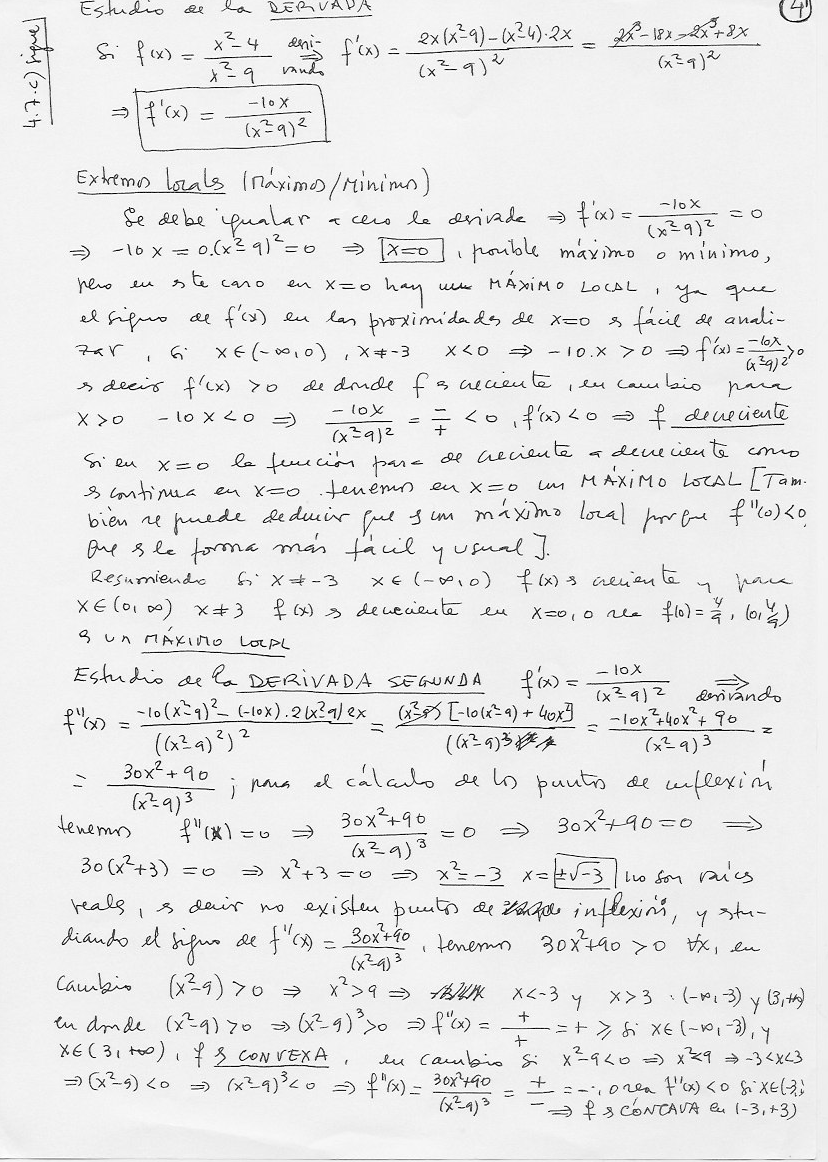 Estudio de la DERIVADA 4
4.7.c) sigue
Si f(x) = (x²-4)/(x²-9) deri-vando ⇒ f'(x) = (2x(x²-9)-(x²-4)·2x)/(x²-9)² = (2x³-18x-2x³+8x)/(x²-9)²
⇒ f'(x) = -10x/(x²-9)²
Extremos locales (Máximos/Mínimos)
Se debe igualar a cero la derivada ⇒ f'(x) = -10x/(x²-9)² = 0
⇒ -10x = 0.(x²-9)² = 0 ⇒ x=0, posible máximo o mínimo,
pero en este caso en x=0 hay un MÁXIMO LOCAL, ya que
el signo de f'(x) en las proximidades de x=0 es fácil de anali-
zar, si x∈(-∞,0), x≠-3 x<0 ⇒ -10.x > 0 ⇒ f'(x) = -10x/(x²-9)² > 0
es decir f'(x) > 0 de donde f es creciente, en cambio para
x>0 -10x<0 ⇒ -10x/(x²-9)² = -/+ < 0, f'(x)<0 ⇒ f decreciente
Si en x=0 la función pasa de creciente a decreciente como
es continua en x=0 tenemos en x=0 un MÁXIMO LOCAL [Tam-
bién se puede deducir que es un máximo local porque f''(0)<0
que es la forma más fácil y usual].
Resumiendo si x≠-3 x∈(-∞,0) f(x) es creciente y para
x∈(0,∞) x≠3 f(x) es decreciente en x=0, o sea f(0)=4/9, (0,4/9)
es un MÁXIMO LOCAL
Estudio de la DERIVADA SEGUNDA f'(x) = -10x/(x²-9)² ⇒ derivando
f''(x) = (-10(x²-9)²-(-10x).2(x²-9)2x)/((x²-9)²)² = (x²-9)[-10(x²-9)+40x²]/((x²-9)³ = (-10x²+40x²+90)/(x²-9)³ =
= (30x²+90)/(x²-9)³ ; para el cálculo de los puntos de inflexión
tenemos f''(x)=0 ⇒ (30x²+90)/(x²-9)³ = 0 ⇒ 30x²+90=0 ⇒
30(x²+3) = 0 ⇒ x²+3=0 ⇒ x²=-3 x=±√-3 no son raíces
reales, es decir no existen puntos de inflexión, y estu-
diando el signo de f''(x) = (30x²+90)/(x²-9)³, tenemos 30x²+90 > 0 ∀x, en
cambio (x²-9)>0 ⇒ x²>9 ⇒ x<-3 y x>3 : (-∞,-3) y (3,+∞)
en donde (x²-9)>0 ⇒ (x²-9)³>0 ⇒ f''(x) = +/+ = + ⇒ si x∈(-∞,-3), y
x∈(3,+∞), f es CONVEXA, en cambio si x²-9<0 ⇒ x²<9 ⇒ -3<x<3
⇒ (x²-9)<0 ⇒ (x²-9)³<0 ⇒ f''(x) = (30x²+90)/(x²-9)³ = +/- = -, o sea f''(x)<0 si x∈(-3,
⇒ f es CÓNCAVA en (-3,+3)